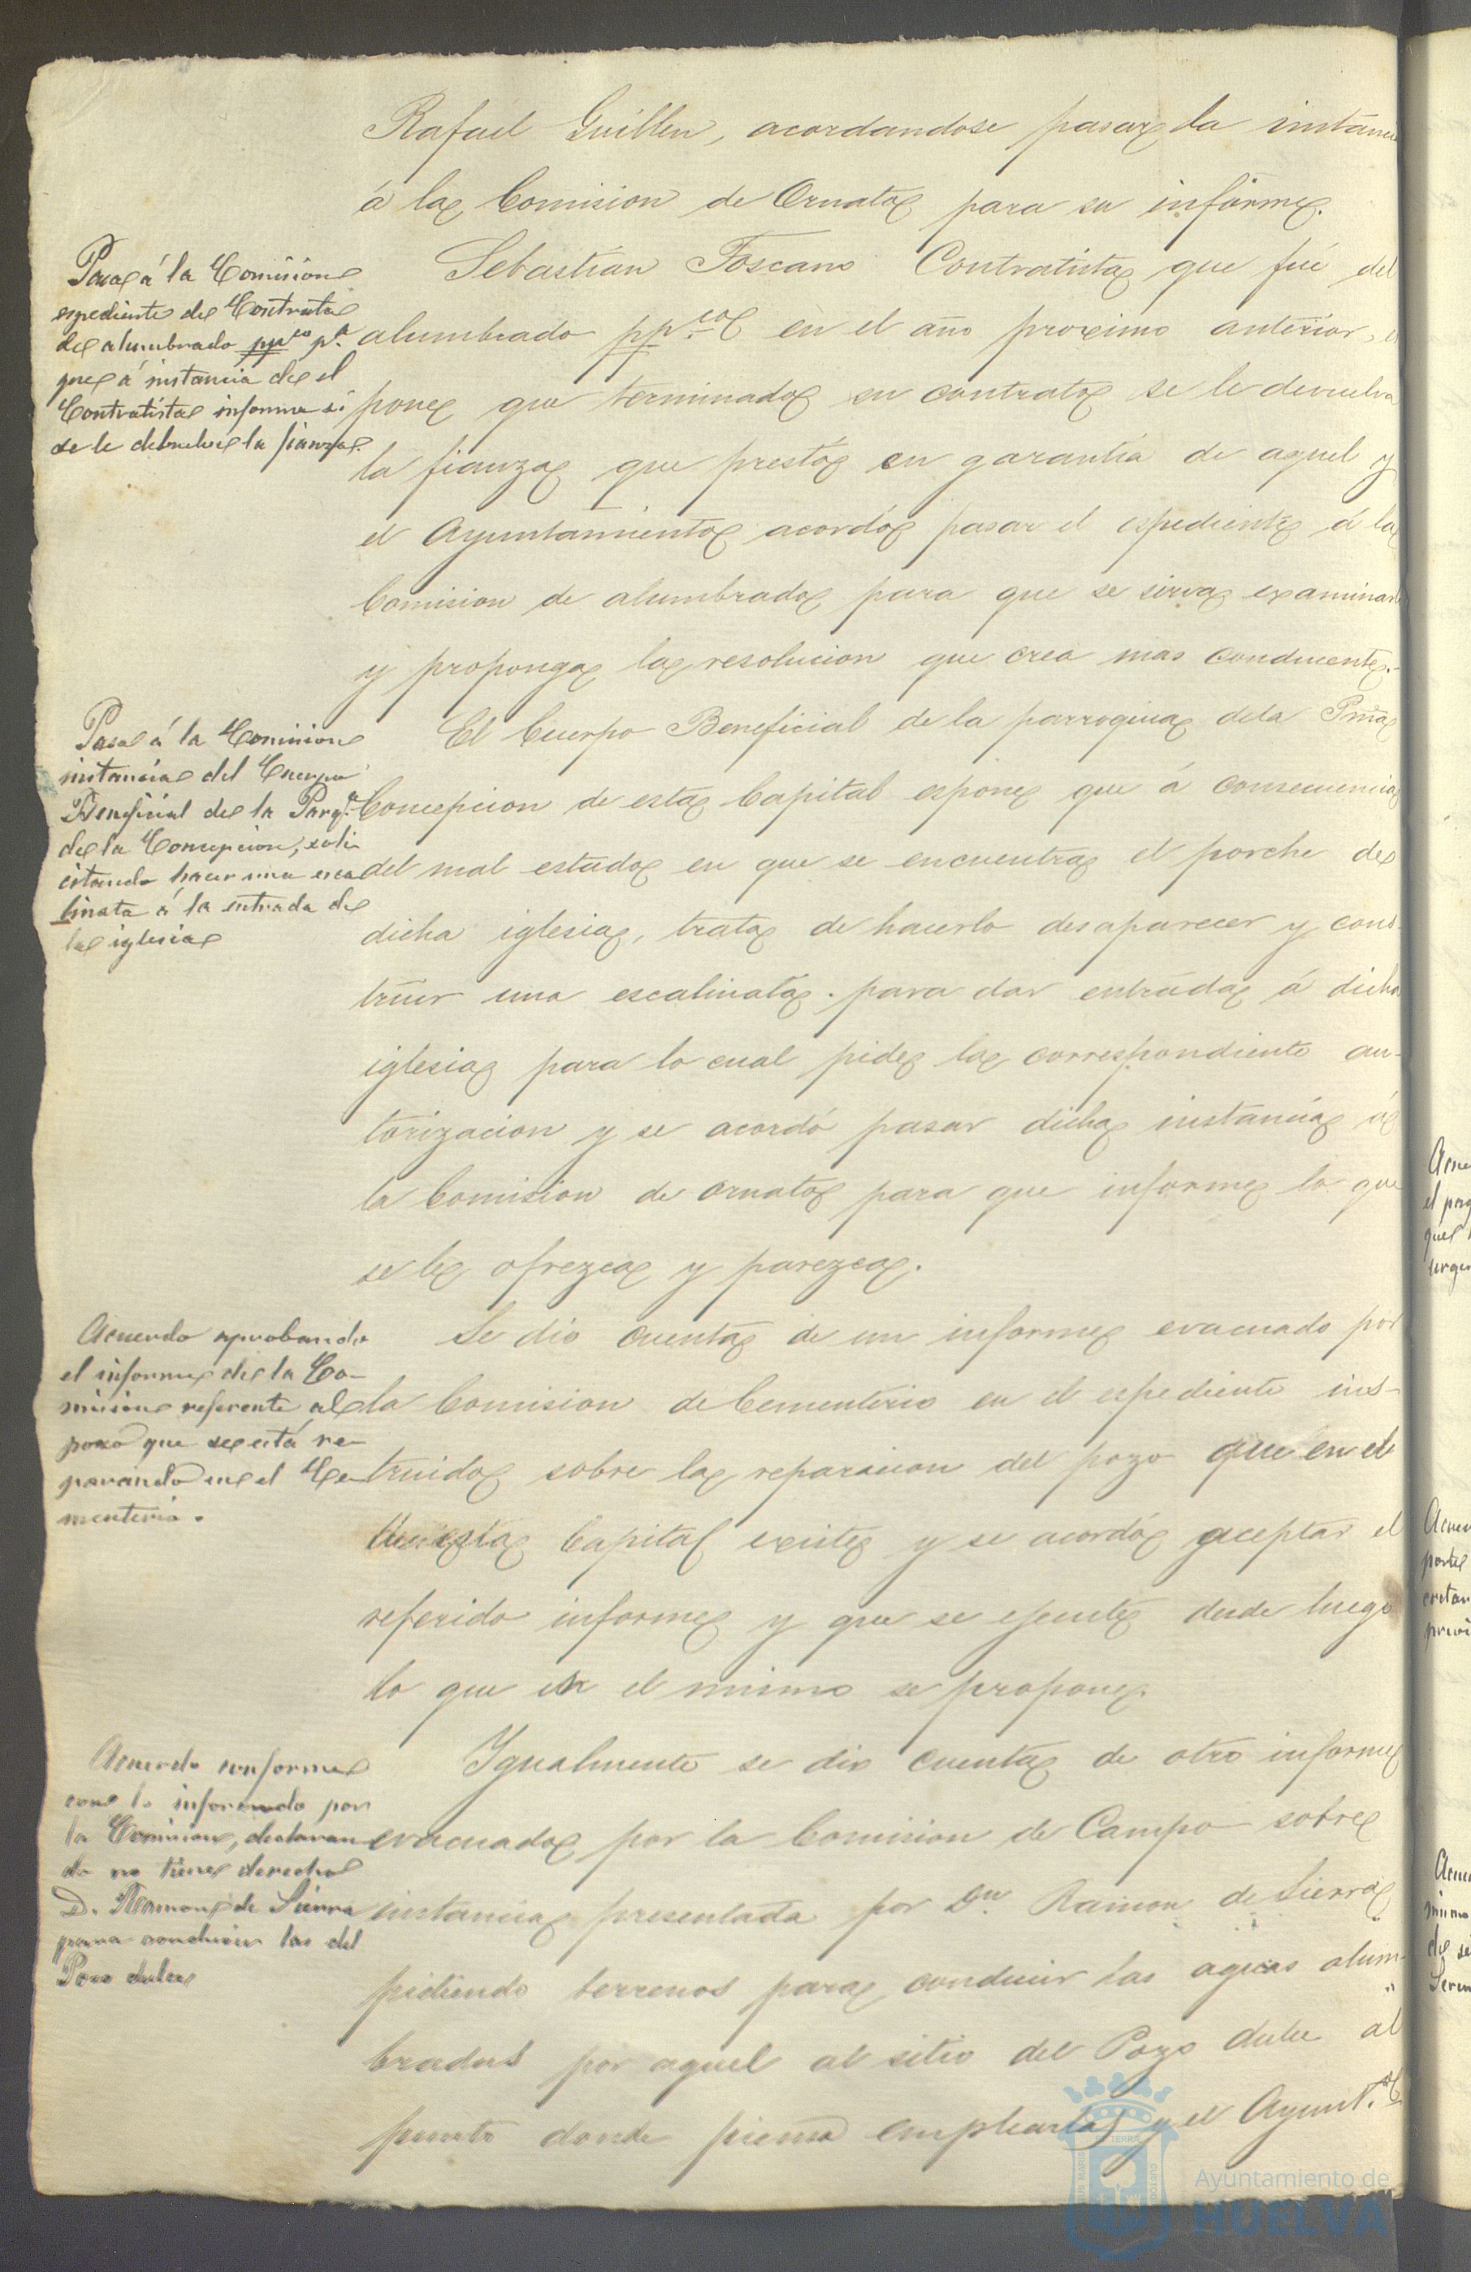 Rafael Guillen, acordandose pasar la instancia
á la Comision de Ornato para su informe.
Pasa á la Comision
espediente de Contrata
de alumbrado ppco pa
que á instancia de el
Contratista informe si
se le debuelve la fianza.
Sebastian Toscano Contratista que fué del
alumbrado ppco en el año proximo anterior, es
pone que terminado su contrato se le devuelva
la fianza que prestó en garantia de aquel y
el Ayuntamiento acordó pasar el espediente á la
Comision de alumbrado para que se sirva examinarlo
y proponga la resolucion que crea mas conducente.
Pasa á la Comision
instancia del Cuerpo
Beneficial de la Parqa
de la Concepcion, soli
citando hacer una esca
linata á la entrada de
la iglesia
El Cuerpo Beneficial de la parroquia dela Prma
Concepcion de esta Capital espone que á consecuencia
del mal estado en que se encuentra el porche de
dicha iglesia, trata de hacerlo desaparecer y cons-
truir una escalinata para dar entrada á dicha
iglesia para lo cual pide la correspondiente au-
torizacion y se acordó pasar dicha instancia á
la Comision de ornato para que informe lo que
se le ofrezca y parezca.
Acuerdo aprobando
el informe de la Co-
mision referente al
pozo que se está re-
parando en el Ce-
menterio.
Se dio cuenta de un informe evacuado por
la Comision de Cementerio en el espediente ins-
truido sobre la reparacion del pozo que en el
de esta Capital existe y se acordó aceptar el
referido informe y que se ejecute desde luego
lo que en el mismo se propone.
Acuerdo conforme
con lo informado por
la Comision, declaran
do no tiene derecho
D. Ramon de Sierra
para conducir las del
Pozo dulce
Igualmente se dio cuenta de otro informe
evacuado por la Comision de Campo sobre
instancia presentada por Dn Ramon de Sierra
pidiendo terrenos para conducir las aguas alum-
bradas por aquel al sitio del Pozo dulce al
punto donde piensa emplearlas y el Ayunt.to
Ayuntamiento de
HUELVA